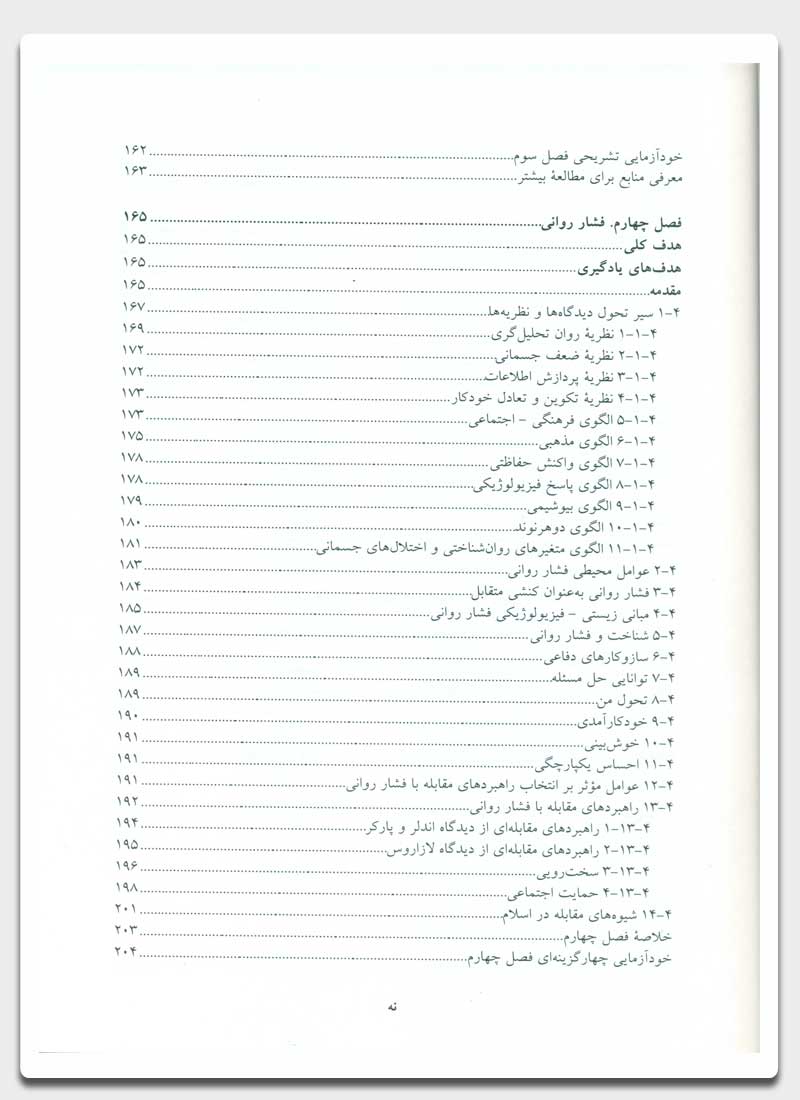 خودآزمایی تشریحی فصل سوم ۱۶۲
معرفی منابع برای مطالعۀ بیشتر ۱۶۳
فصل چهارم. فشار روانی ۱۶۵
هدف کلی ۱۶۵
هدف‌های یادگیری ۱۶۵
مقدمه ۱۶۵
۴-۱ سیر تحول دیدگاه‌ها و نظریه‌ها ۱۶۷
۴-۱-۱ نظریۀ روان تحلیل‌گری ۱۶۹
۴-۱-۲ نظریۀ ضعف جسمانی ۱۷۲
۴-۱-۳ نظریۀ پردازش اطلاعات ۱۷۲
۴-۱-۴ نظریۀ تکوین و تعادل خودکار ۱۷۳
۴-۱-۵ الگوی فرهنگی - اجتماعی ۱۷۳
۴-۱-۶ الگوی مذهبی ۱۷۵
۴-۱-۷ الگوی واکنش حفاظتی ۱۷۸
۴-۱-۸ الگوی پاسخ فیزیولوژیکی ۱۷۸
۴-۱-۹ الگوی بیوشیمی ۱۷۹
۴-۱-۱۰ الگوی دوهرنوند ۱۸۰
۴-۱-۱۱ الگوی متغیرهای روان‌شناختی و اختلال‌های جسمانی ۱۸۱
۴-۲ عوامل محیطی فشار روانی ۱۸۳
۴-۳ فشار روانی به‌عنوان کنشی متقابل ۱۸۴
۴-۴ مبانی زیستی - فیزیولوژیکی فشار روانی ۱۸۵
۴-۵ شناخت و فشار روانی ۱۸۷
۴-۶ سازوکارهای دفاعی ۱۸۸
۴-۷ توانایی حل مسئله ۱۸۹
۴-۸ تحول من ۱۸۹
۴-۹ خودکارآمدی ۱۹۰
۴-۱۰ خوش‌بینی ۱۹۱
۴-۱۱ احساس یکپارچگی ۱۹۱
۴-۱۲ عوامل مؤثر بر انتخاب راهبردهای مقابله با فشار روانی ۱۹۱
۴-۱۳ راهبردهای مقابله با فشار روانی ۱۹۲
۴-۱۳-۱ راهبردهای مقابله‌ای از دیدگاه اندلر و پارکر ۱۹۴
۴-۱۳-۲ راهبردهای مقابله‌ای از دیدگاه لازاروس ۱۹۵
۴-۱۳-۳ سخت‌رویی ۱۹۶
۴-۱۳-۴ حمایت اجتماعی ۱۹۸
۴-۱۴ شیوه‌های مقابله در اسلام ۲۰۱
خلاصۀ فصل چهارم ۲۰۳
خودآزمایی چهارگزینه‌ای فصل چهارم ۲۰۴
نه